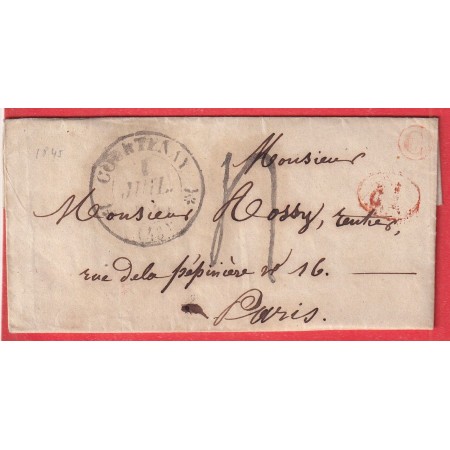 1845
COURTENAY
1
JUIL.
(43)
C
4
Monsieur
Monsieur Rossy, rentier,
rue de la pépinière nº 16.
Paris.